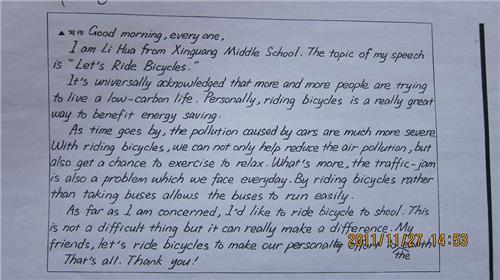 ▲写作 Good morning, every one,
I am Li Hua from Xinguang Middle School. The topic of my speech
is "Let's Ride Bicycles."
It's universally acknowledged that more and more people are trying
to live a low-carbon life. Personally, riding bicycles is a really great
way to benefit energy saving.
As time goes by, the pollution caused by cars are much more severe
With riding bicycles, we can not only help reduce the air pollution, but
also get a chance to exercise to relax. What's more, the traffic-jam
is also a problem which we face everyday. By riding bicycles rather
than taking buses allows the buses to run easily.
As far as I am concerned, I'd like to ride bicycle to shool. This
is not a difficult thing but it can really make a difference. My
friends, let's ride bicycles to make our personal effort to
the
That's all. Thank you!
2011/11/27 14:53